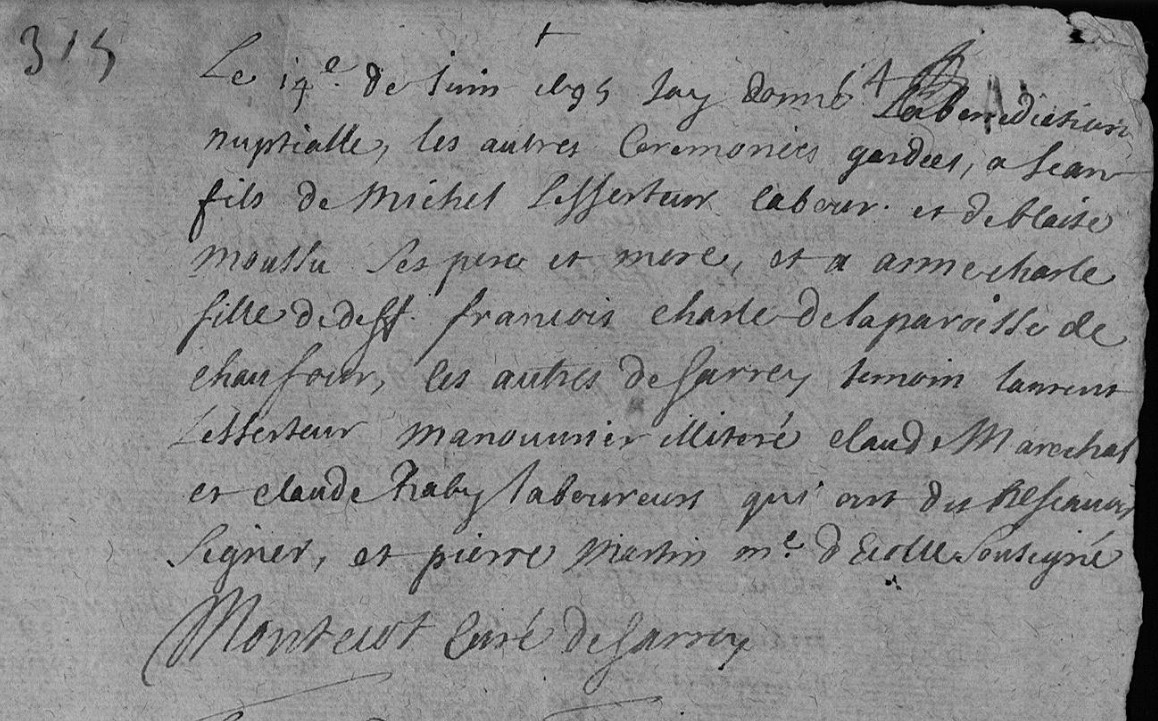 315
Le 14e. de Juin 1695 Jay donné la benediction
nuptialle, les autres Ceremonies gardées, a Jean
fils de Michel Lesserteur labour. et de blaise
moussu ses pere et mere, et a anne charle
fille de deff. francois charle de la paroisse de
chaufour, les autres de Sarrey temoin laurent
Lesserteur manouvrier illiteré claude Marechal
et claude laboureurs qui ont dit ne scauoir
signer, et pierre Martin me. d'Ecolle soussigné
Curé de Sarrey